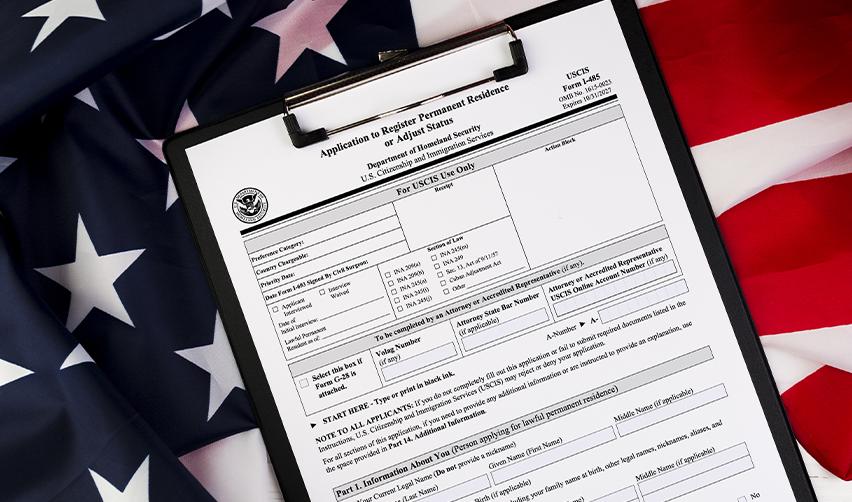 Application to Register Permanent Residence
or Adjust Status
Department of Homeland Security
U.S. Citizenship and Immigration Services
USCIS
Form I-485
OMB No. 1615-0023
Expires 10/31/2027
For USCIS Use Only
Preference Category:
Country Chargeable:
Priority Date:
Date Form I-693 Signed By Civil Surgeon:
Applicant
Interviewed
Interview
Waived
Date of
Initial Interview:
Lawful Permanent
Resident as of:
Receipt
Action Block
Section of Law
INA 209(a)
INA 209(b)
INA 245(a)
INA 245(i)
INA 245(j)
INA 245(m)
INA 249
Sec. 13, Act of 9/11/57
Cuban Adjustment Act
Other
To be completed by an Attorney or Accredited Representative (if any).
Select this box if
Form G-28 is
attached.
Volag Number
(if any)
Attorney State Bar Number
(if applicable)
Attorney or Accredited Representative
USCIS Online Account Number (if any)
A-Number ► A-
► START HERE - Type or print in black ink.
NOTE TO ALL APPLICANTS: If you do not completely fill out this application or fail to submit required documents listed in the
Instructions, U.S. Citizenship and Immigration Services (USCIS) may reject or deny your application.
For all sections of this application, if you need to provide any additional information or are instructed to provide an explanation, use
the space provided in Part 14. Additional Information.
Part 1. Information About You (Person applying for lawful permanent residence)
Your Current Legal Name (Do not provide a nickname)
(Last Name)
Given Name (First Name)
Middle Name (if applicable)
Birth (if applicable)
including your family name at birth, other legal names, nicknames, aliases, and
Middle Name (if applicable)
No